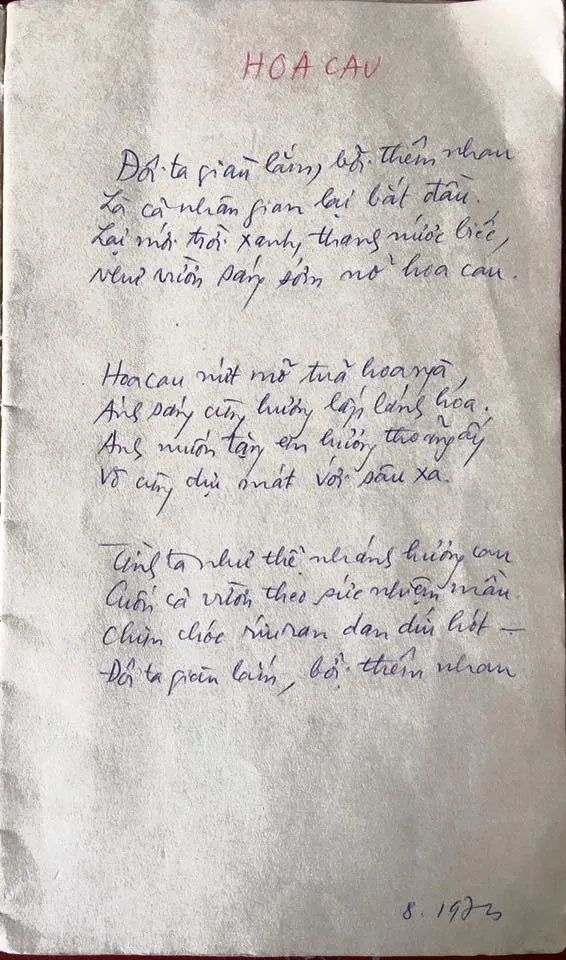 HOA CAU
Đôi ta giàu lắm, bởi thêm nhau
Là cả nhân gian lại bắt đầu.
Lại mới trời xanh, thang nước biếc,
Như vườn sáng sớm nở hoa cau.
Hoa cau nứt mở tuà hoa ngà,
Ánh sáng cùng hương lấp lánh hoa.
Anh muốn tặng em hương thoảng ấy
Vô cùng dịu mát với sâu xa.
Tình ta như thể nhánh hương cau
Cuốn cả vườn theo sức nhiệm mầu.
Chim chóc ríu ran dan díu hót —
Đôi ta giàu lắm, bởi thêm nhau
8. 197